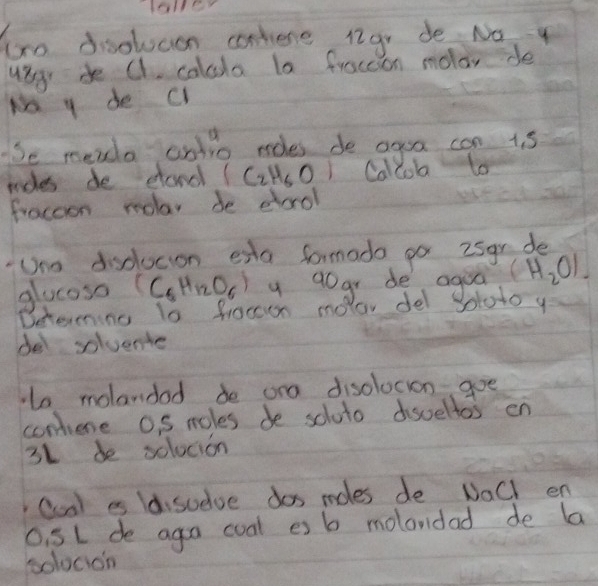 Taller
Una disolucion contiene 12gr de Na y
48gr de Cl. calcula la fraccion molar de
Na y de Cl
-Se mezcla cuatro moles de agua con 1,5
moles de etanol (C2H6O) Calcula la
fraccion molar de etanol
-Una disolucion esta formada por 25gr de
glucosa (C6H12O6) y 90gr de agua (H2O).
Determina la fraccion molar del soluto y
del solvente
.La molaridad de una disolucion que
contiene 0,5 moles de soluto disueltos en
3L de solución
.Cual es disuelve dos moles de NaCl en
0,5L de agua cual es la molaridad de la
solución